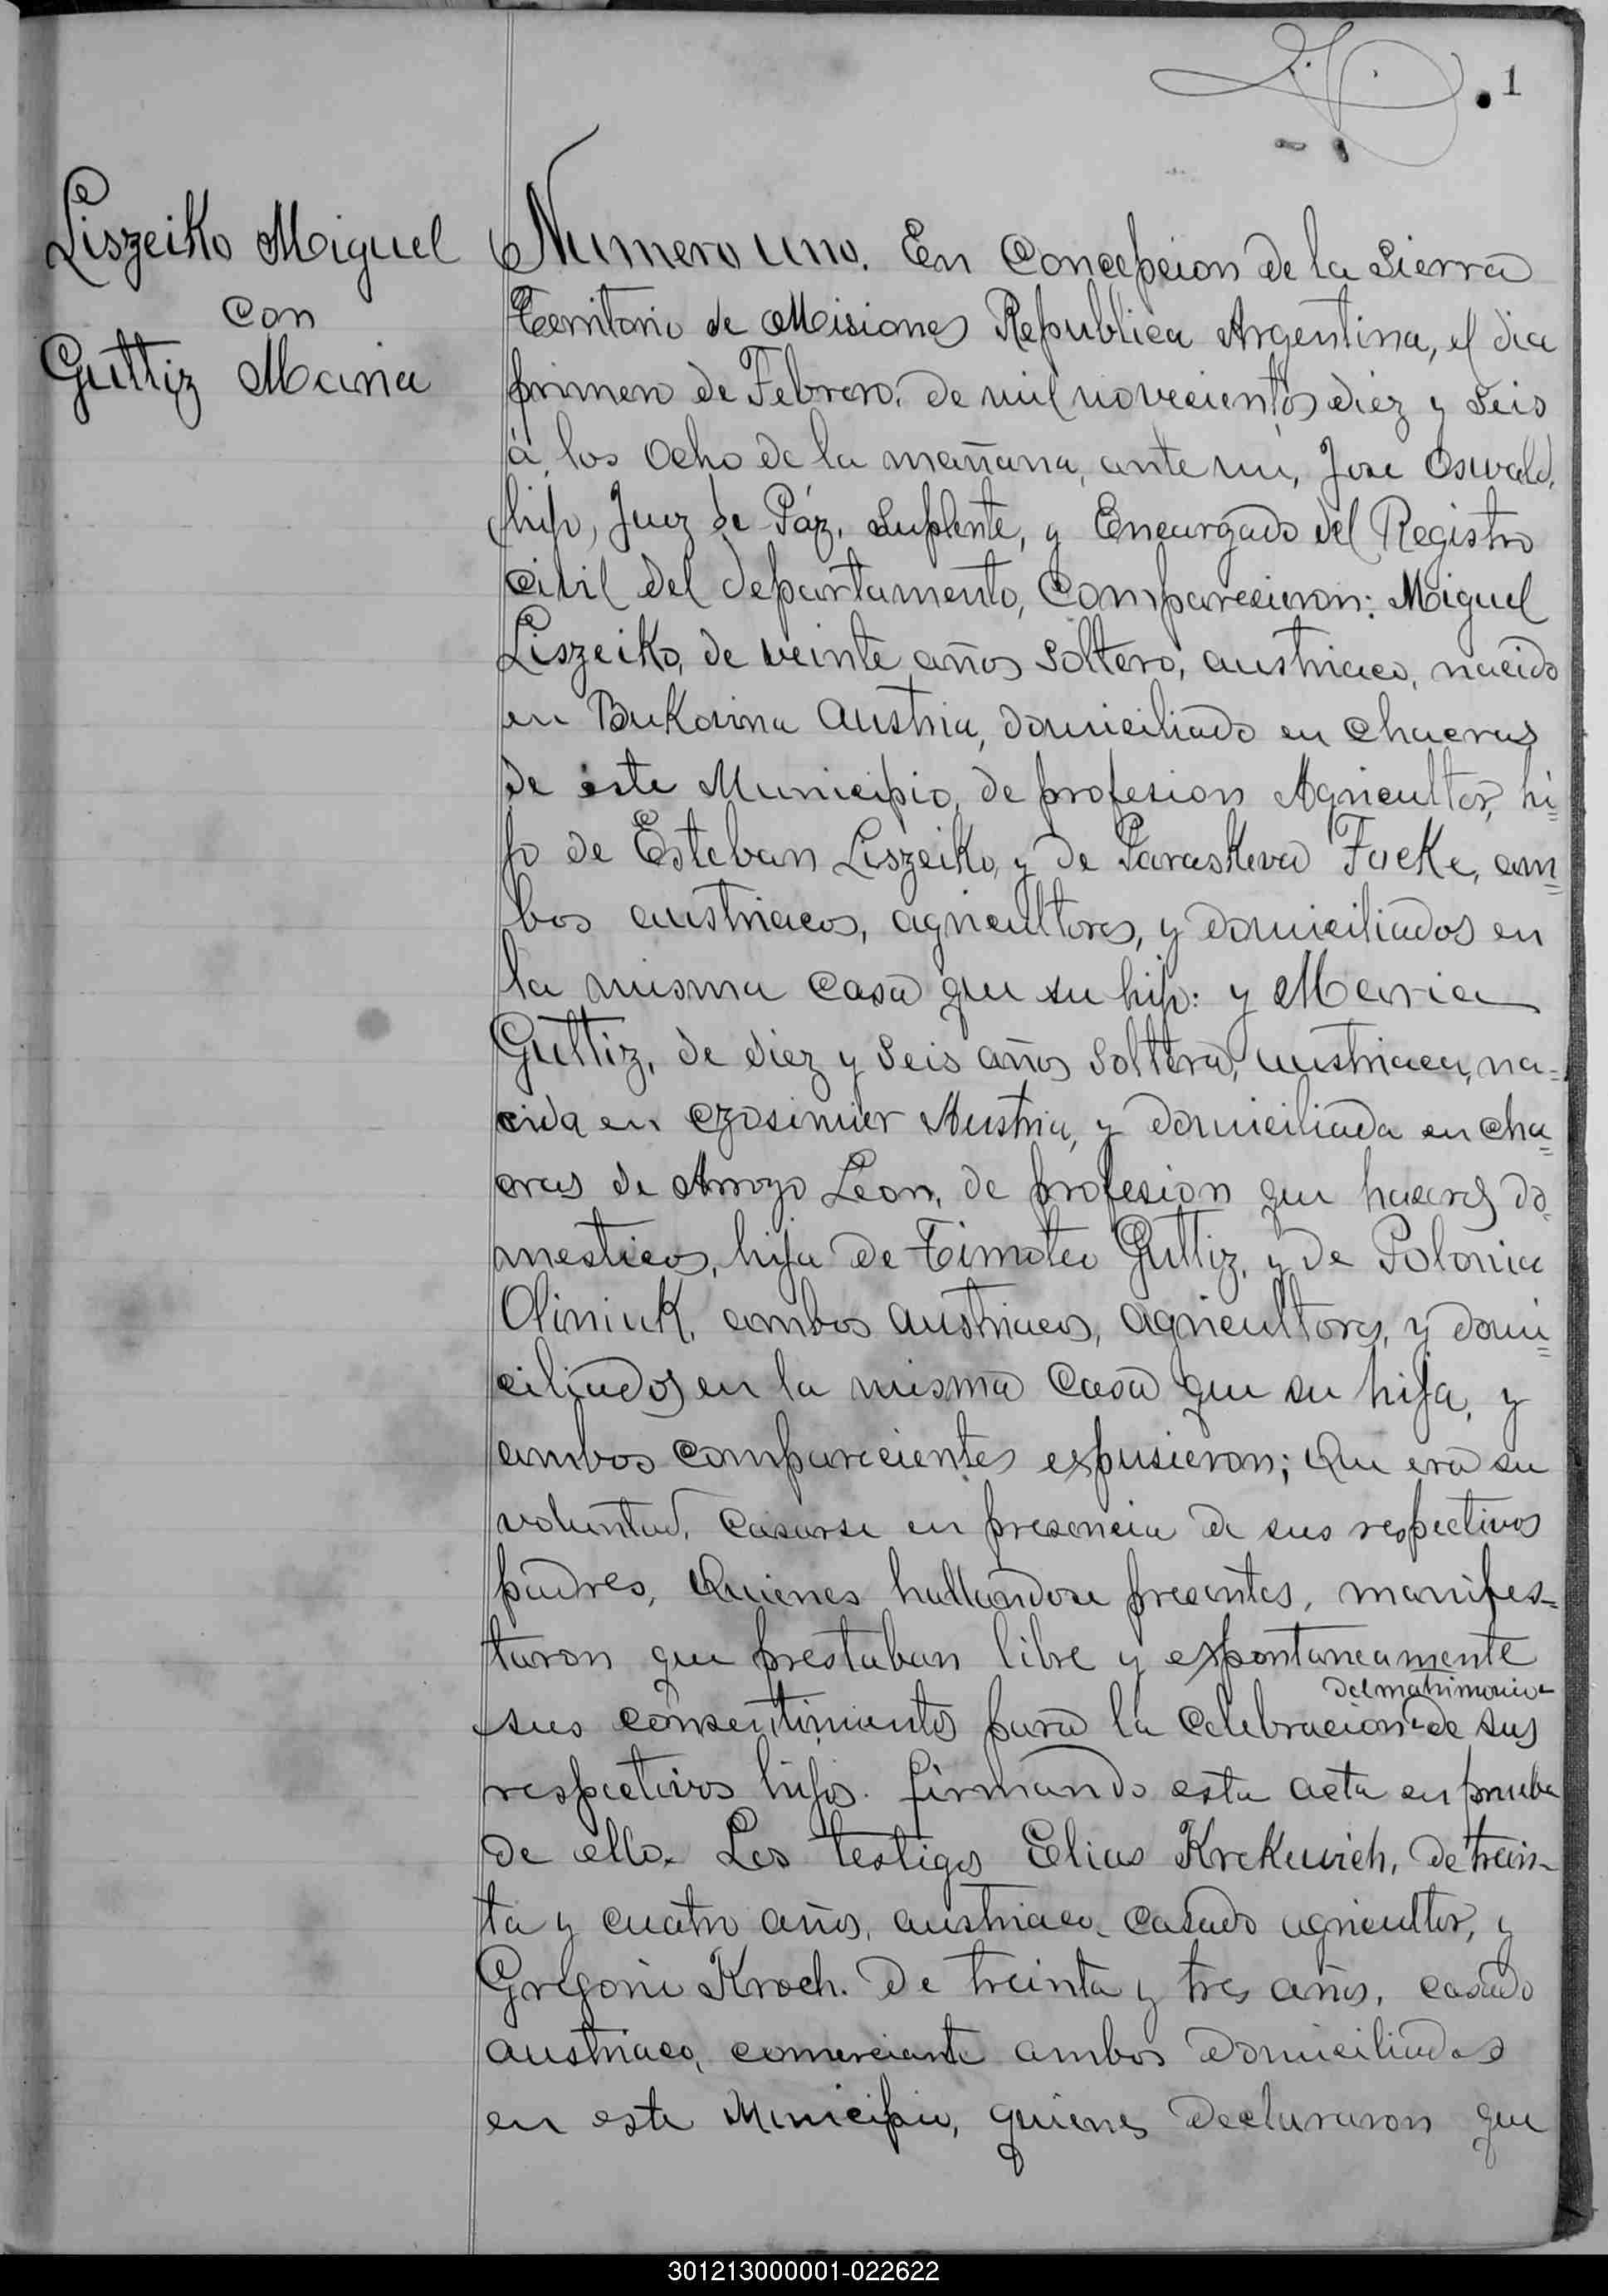 1
Liszeiko Miguel
con
Guttiz Maria
Numero uno. En Concepcion de la Sierra
Territorio de Misiones Republica Argentina, el dia
primero de Febrero. de mil novecientos diez y seis
á los Ocho de la mañana, ante mi, Jose Oswald,
hijo, Juez de Páz. Suplente, y Encargado del Registro
Civil del departamento, Comparecieron: Miguel
Liszeiko, de veinte años soltero, austriaco, nacido
en Bukovina Austria, domiciliado en chacras
de este Municipio, de profesion Agricultor, hi=
jo de Esteban Liszeiko, y de Paraskeva Facke, am=
bos austriacos, agricultores, y domiciliados en
la misma casa que su hijo: y Maria
Guttiz, de diez y seis años soltera, austriaca, na=
cida en Czosimier Austria, y domiciliada en cha=
cras de Arroyo Leon, de profesion que haceres do=
mesticos, hija de Timoteo Guttiz, y de Polonia
Oliniuk, ambos austriacos, agricultores, y domi=
ciliados en la misma casa que su hija, y
ambos comparecientes expusieron; Que era su
voluntad, casarse en presencia de sus respectivos
padres, Quienes hallandose presentes, manifes=
taron que prestaban libre y expontaneamente
del matrimonio
sus consentimientos para la celebracion de sus
respectivos hijos. firmando esta acta en prueba
de ello. Los testigos Elias Krekuvich, de trein=
ta y cuatro años, austriaco, casado agricultor, y
Gregorio Kroch. De treinta y tres años, casado
austriaco, comerciante ambos domiciliados
en este Municipio, quienes declararon que
301213000001-022622